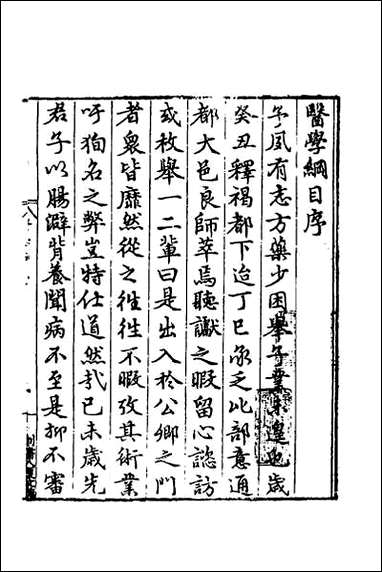 醫學綱目序
予夙有志方藥少困舉子業未遑也歲
癸丑釋褐都下迨丁巳承乏比部意通
都大邑良師萃焉聽讞之暇留心諮訪
或枚舉一二輩曰是出入於公卿之門
者衆皆靡然從之徃徃不暇攷其術業
吁狥名之弊豈特仕道然哉己未歲先
君子以腸澼背養聞病不至是抑不審